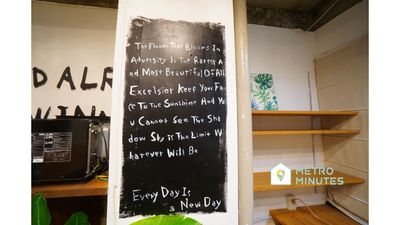 The Flower That Blooms In
Adversity Is The Rarest A
nd Most Beautiful Of All
Excelsior Keep Your Fa
ce To The Sunshine And Yo
u Cannot See The Sha
dow Sky is The Limit W
hatever Will Be
Every Day Is
a New Day
D ALR
WINN
METRO
MINUTES